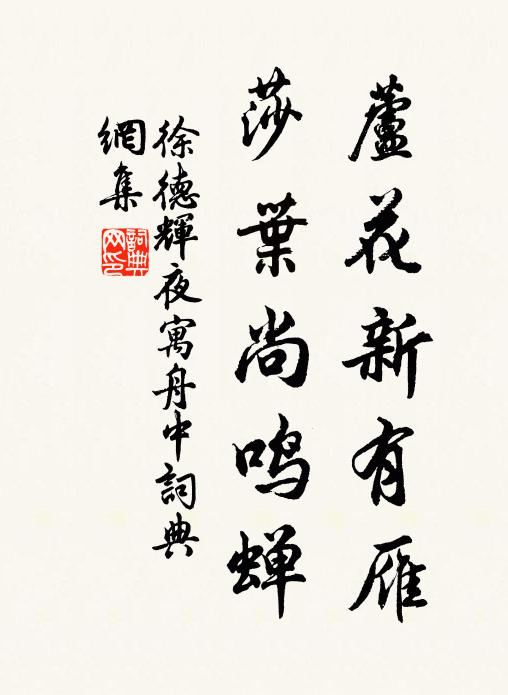 蘆花新有雁
莎葉尚鸣蝉
徐德輝夜寓舟中詞典
網集
詞典
网印